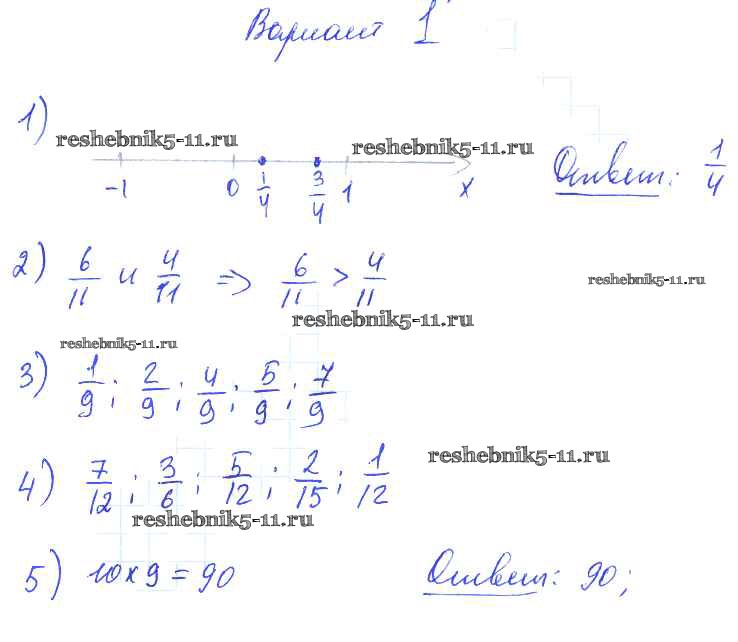 Вариант 1
1)
reshebnik5-11.ru reshebnik5-11.ru
-1 0 1/4 3/4 1 x Ответ: 1/4
2) 6/11 и 4/11 => 6/11 > 4/11
reshebnik5-11.ru
reshebnik5-11.ru
reshebnik5-11.ru
3) 1/9; 2/9; 4/9; 5/9; 7/9
reshebnik5-11.ru
4) 7/12; 3/6; 5/12; 2/15; 1/12
reshebnik5-11.ru
5) 10 x 9 = 90 Ответ: 90;